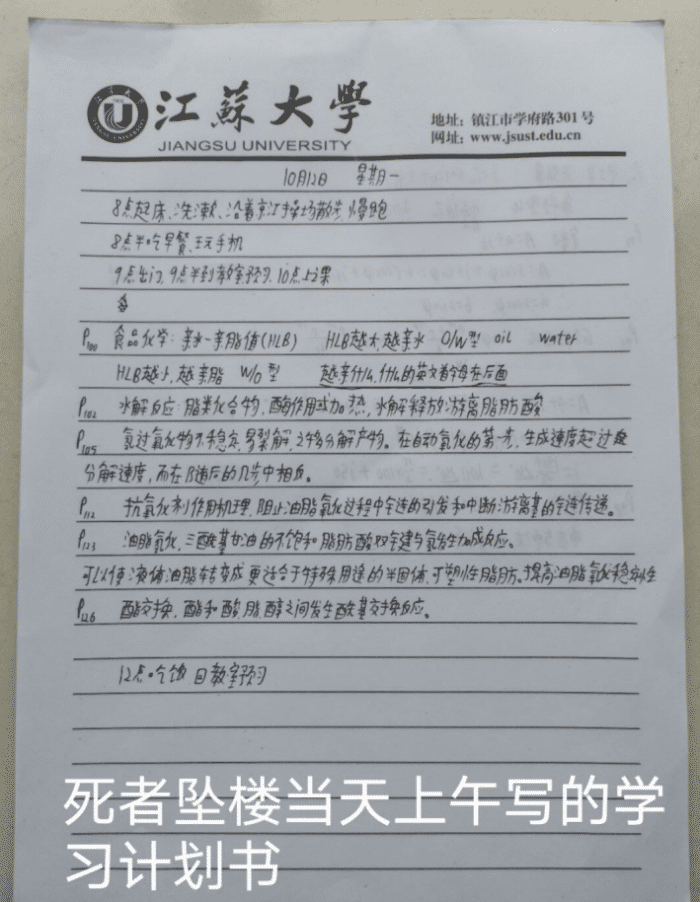 江蘇大學
JIANGSU UNIVERSITY
地址：镇江市学府路301号
网址：www.jsust.edu.cn
10月12日 星期一
8点起床、洗漱、沿着京江操场散步、慢跑
8点半吃早餐、玩手机
9点出门，9点半到教室预习，10点上课
P100 食品化学：亲水-亲脂值(HLB) HLB越大,越亲水 O/W型 oil water
HLB越小,越亲脂 W/O型 越亲什么,什么的英文首字母在后面
P102 水解反应：脂类化合物，酶作用或加热，水解释放游离脂肪酸
P105 氢过氧化物不稳定，易裂解，之多分解产物。在自动氧化的第一步，生成速度超过
分解速度，而在随后的几步中相反。
P112 抗氧化剂作用机理，阻止油脂氧化过程中链的引发和中断游离基的链传递。
P123 油脂氧化，三酰基甘油的不饱和脂肪酸双键与氢发生加成反应。
可以使液体油脂转变成更适合于特殊用途的半固体、可塑性脂肪。提高油脂氧化稳定性
P126 酯交换，酯和酸、脂、醇之间发生酰基交换反应。
12点吃饭 回教室预习
死者坠楼当天上午写的学
习计划书